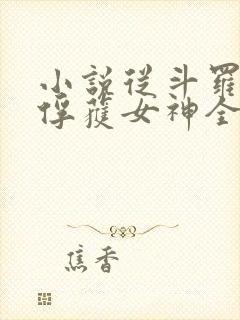 小說從斗羅
俘獲女神全
焦香